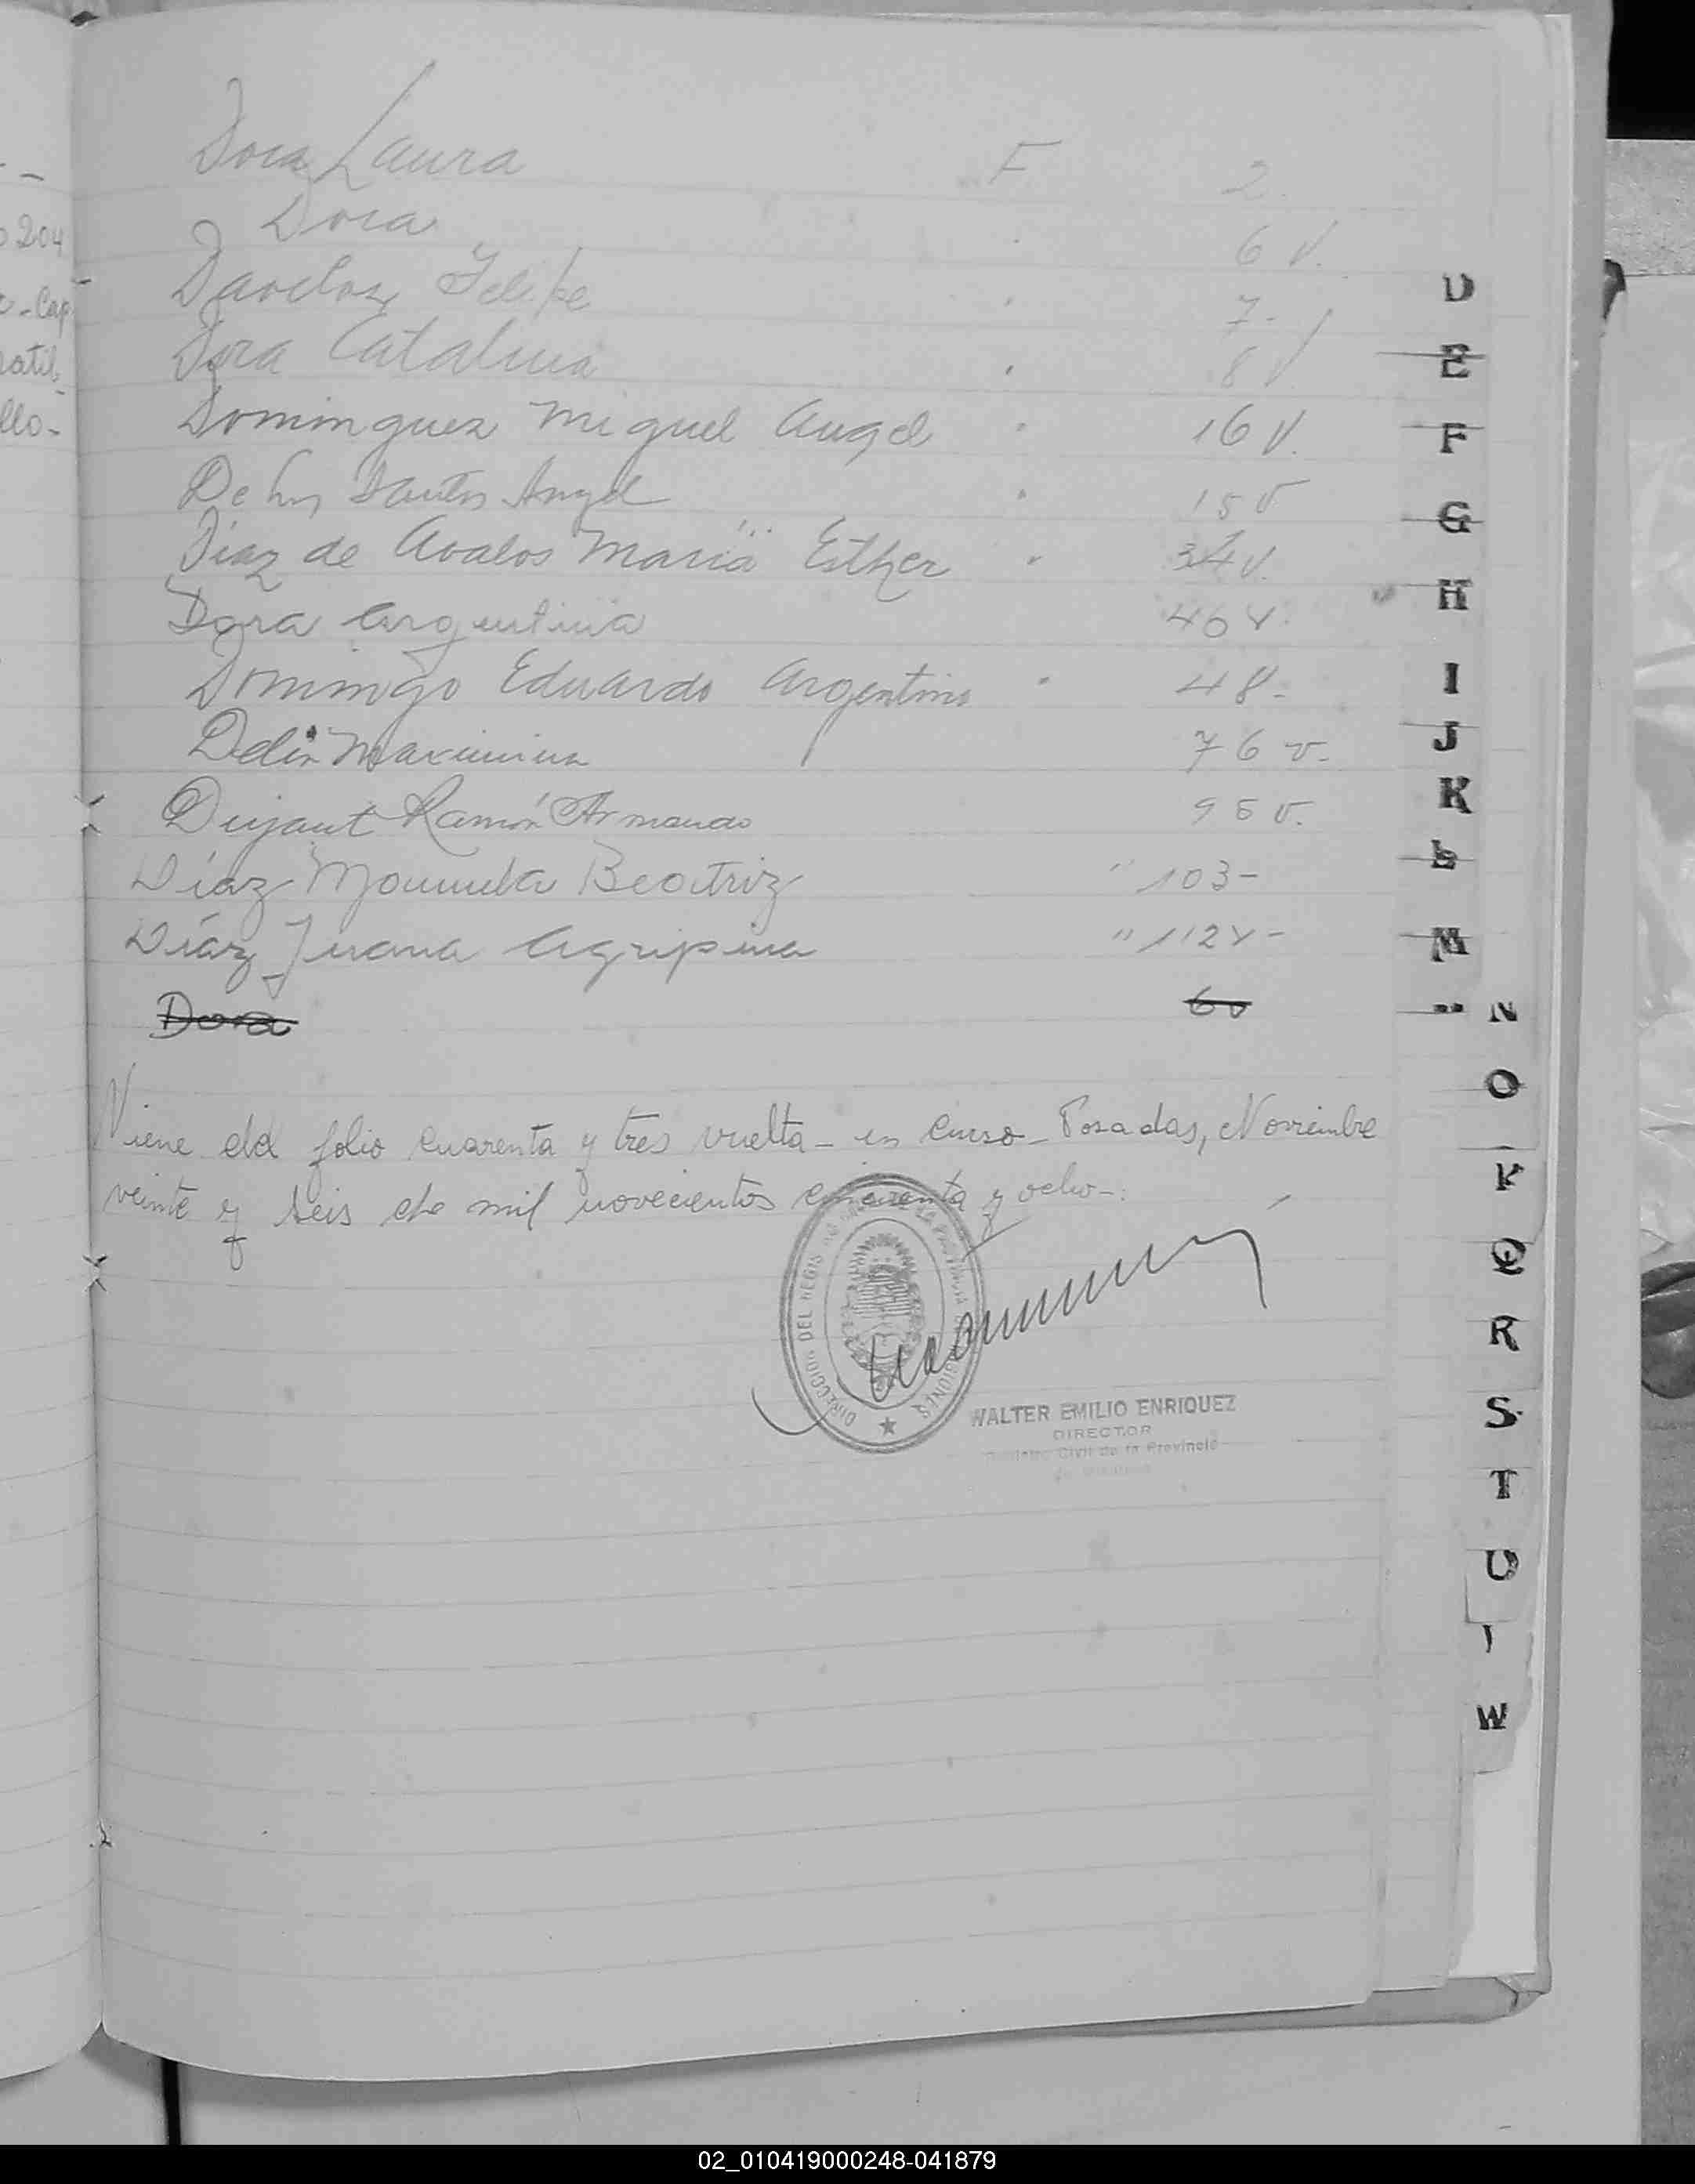 204
Dora Laura F 2.
Dora 6 v.
Felipe 7-
Dora Catalina 8 v
Dominguez Miguel Angel 16 v.
De los Santos Angel 15 v
Díaz de Avalos María Esther " 34 v.
Dora Argentina 46 v.
Domingo Eduardo Argentino " 48-
Delia Maximina 76 v-
Dujaut Ramón Armando 95 v.
Díaz Beatriz " 103-
Díaz Juana Agripina " 112 v-
Dora 6 v
Viene del folio cuarenta y tres vuelta - en curso - Posadas, Noviembre
veinte y seis de mil novecientos cincuenta y ocho-:
DIRECCION DEL REGIS
WALTER EMILIO ENRIQUEZ
DIRECTOR
Civil de la Provincia
D
E
F
G
H
I
J
K
L
M
N
O
P
Q
R
S
T
U
W
02_010419000248-041879